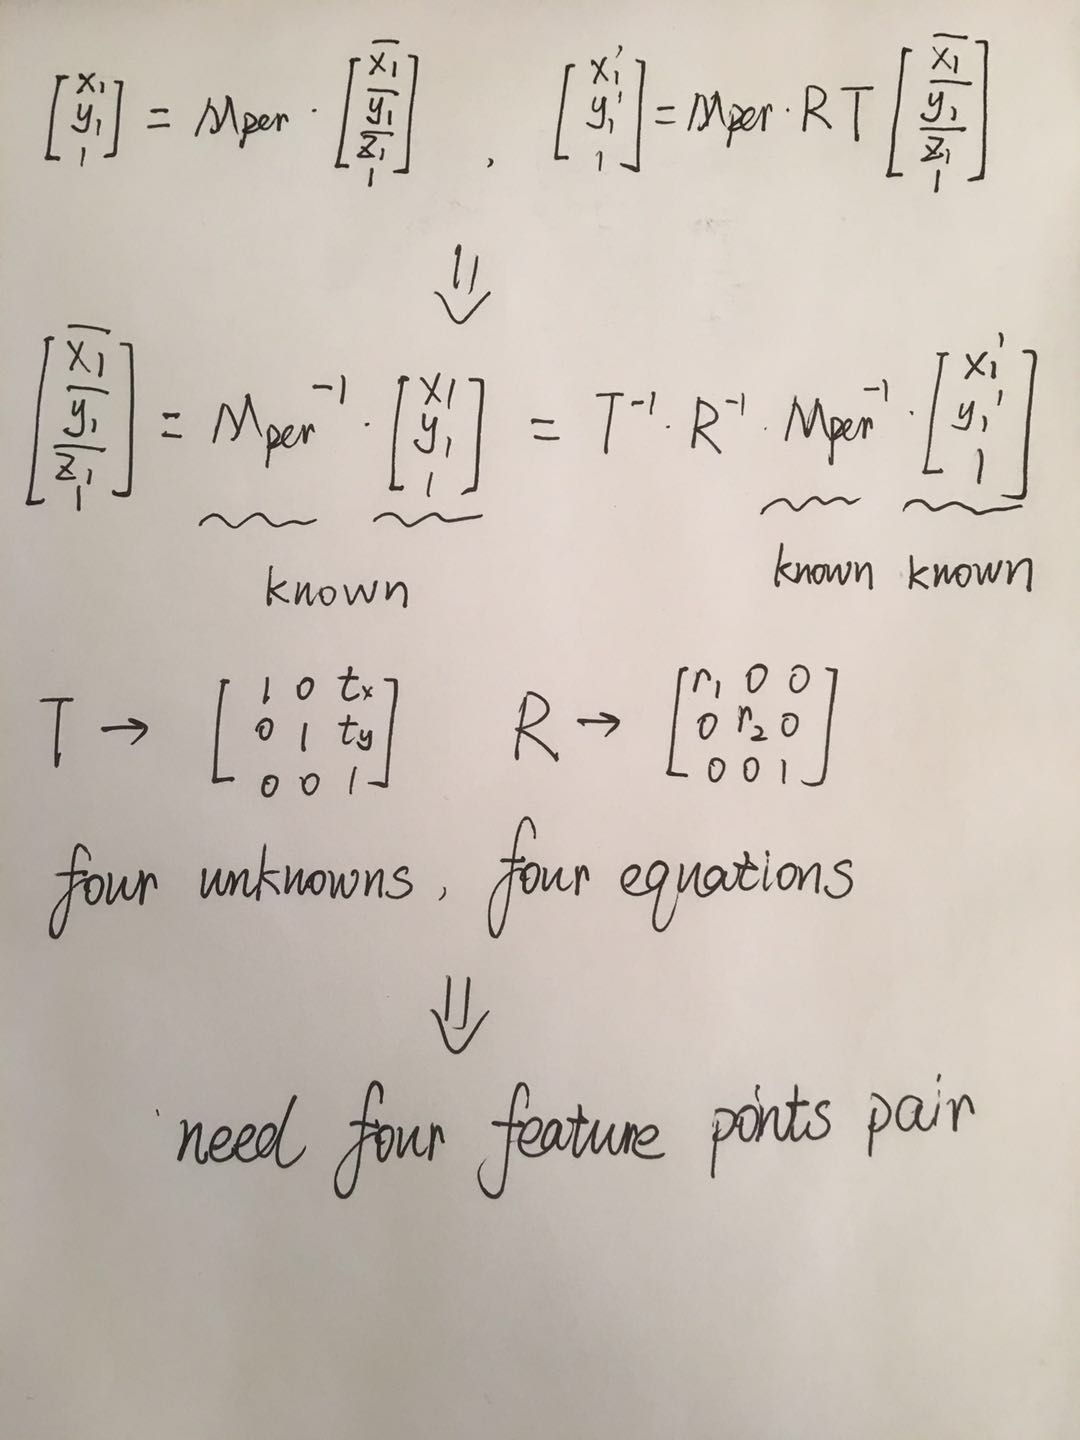 [x₁ y₁ 1] = Mper · [x̄₁ ȳ₁ z̄₁ 1] , [x₁' y₁' 1] = Mper · R T [x̄₁ ȳ₁ z̄₁ 1]
⇓
[x̄₁ ȳ₁ z̄₁ 1] = Mper⁻¹ · [x₁ y₁ 1] = T⁻¹ · R⁻¹ · Mper⁻¹ · [x₁' y₁' 1]
known known known
T → [1 0 tx; 0 1 ty; 0 0 1] R → [r₁ 0 0; 0 r₂ 0; 0 0 1]
four unknowns, four equations
⇓
need four feature points pair